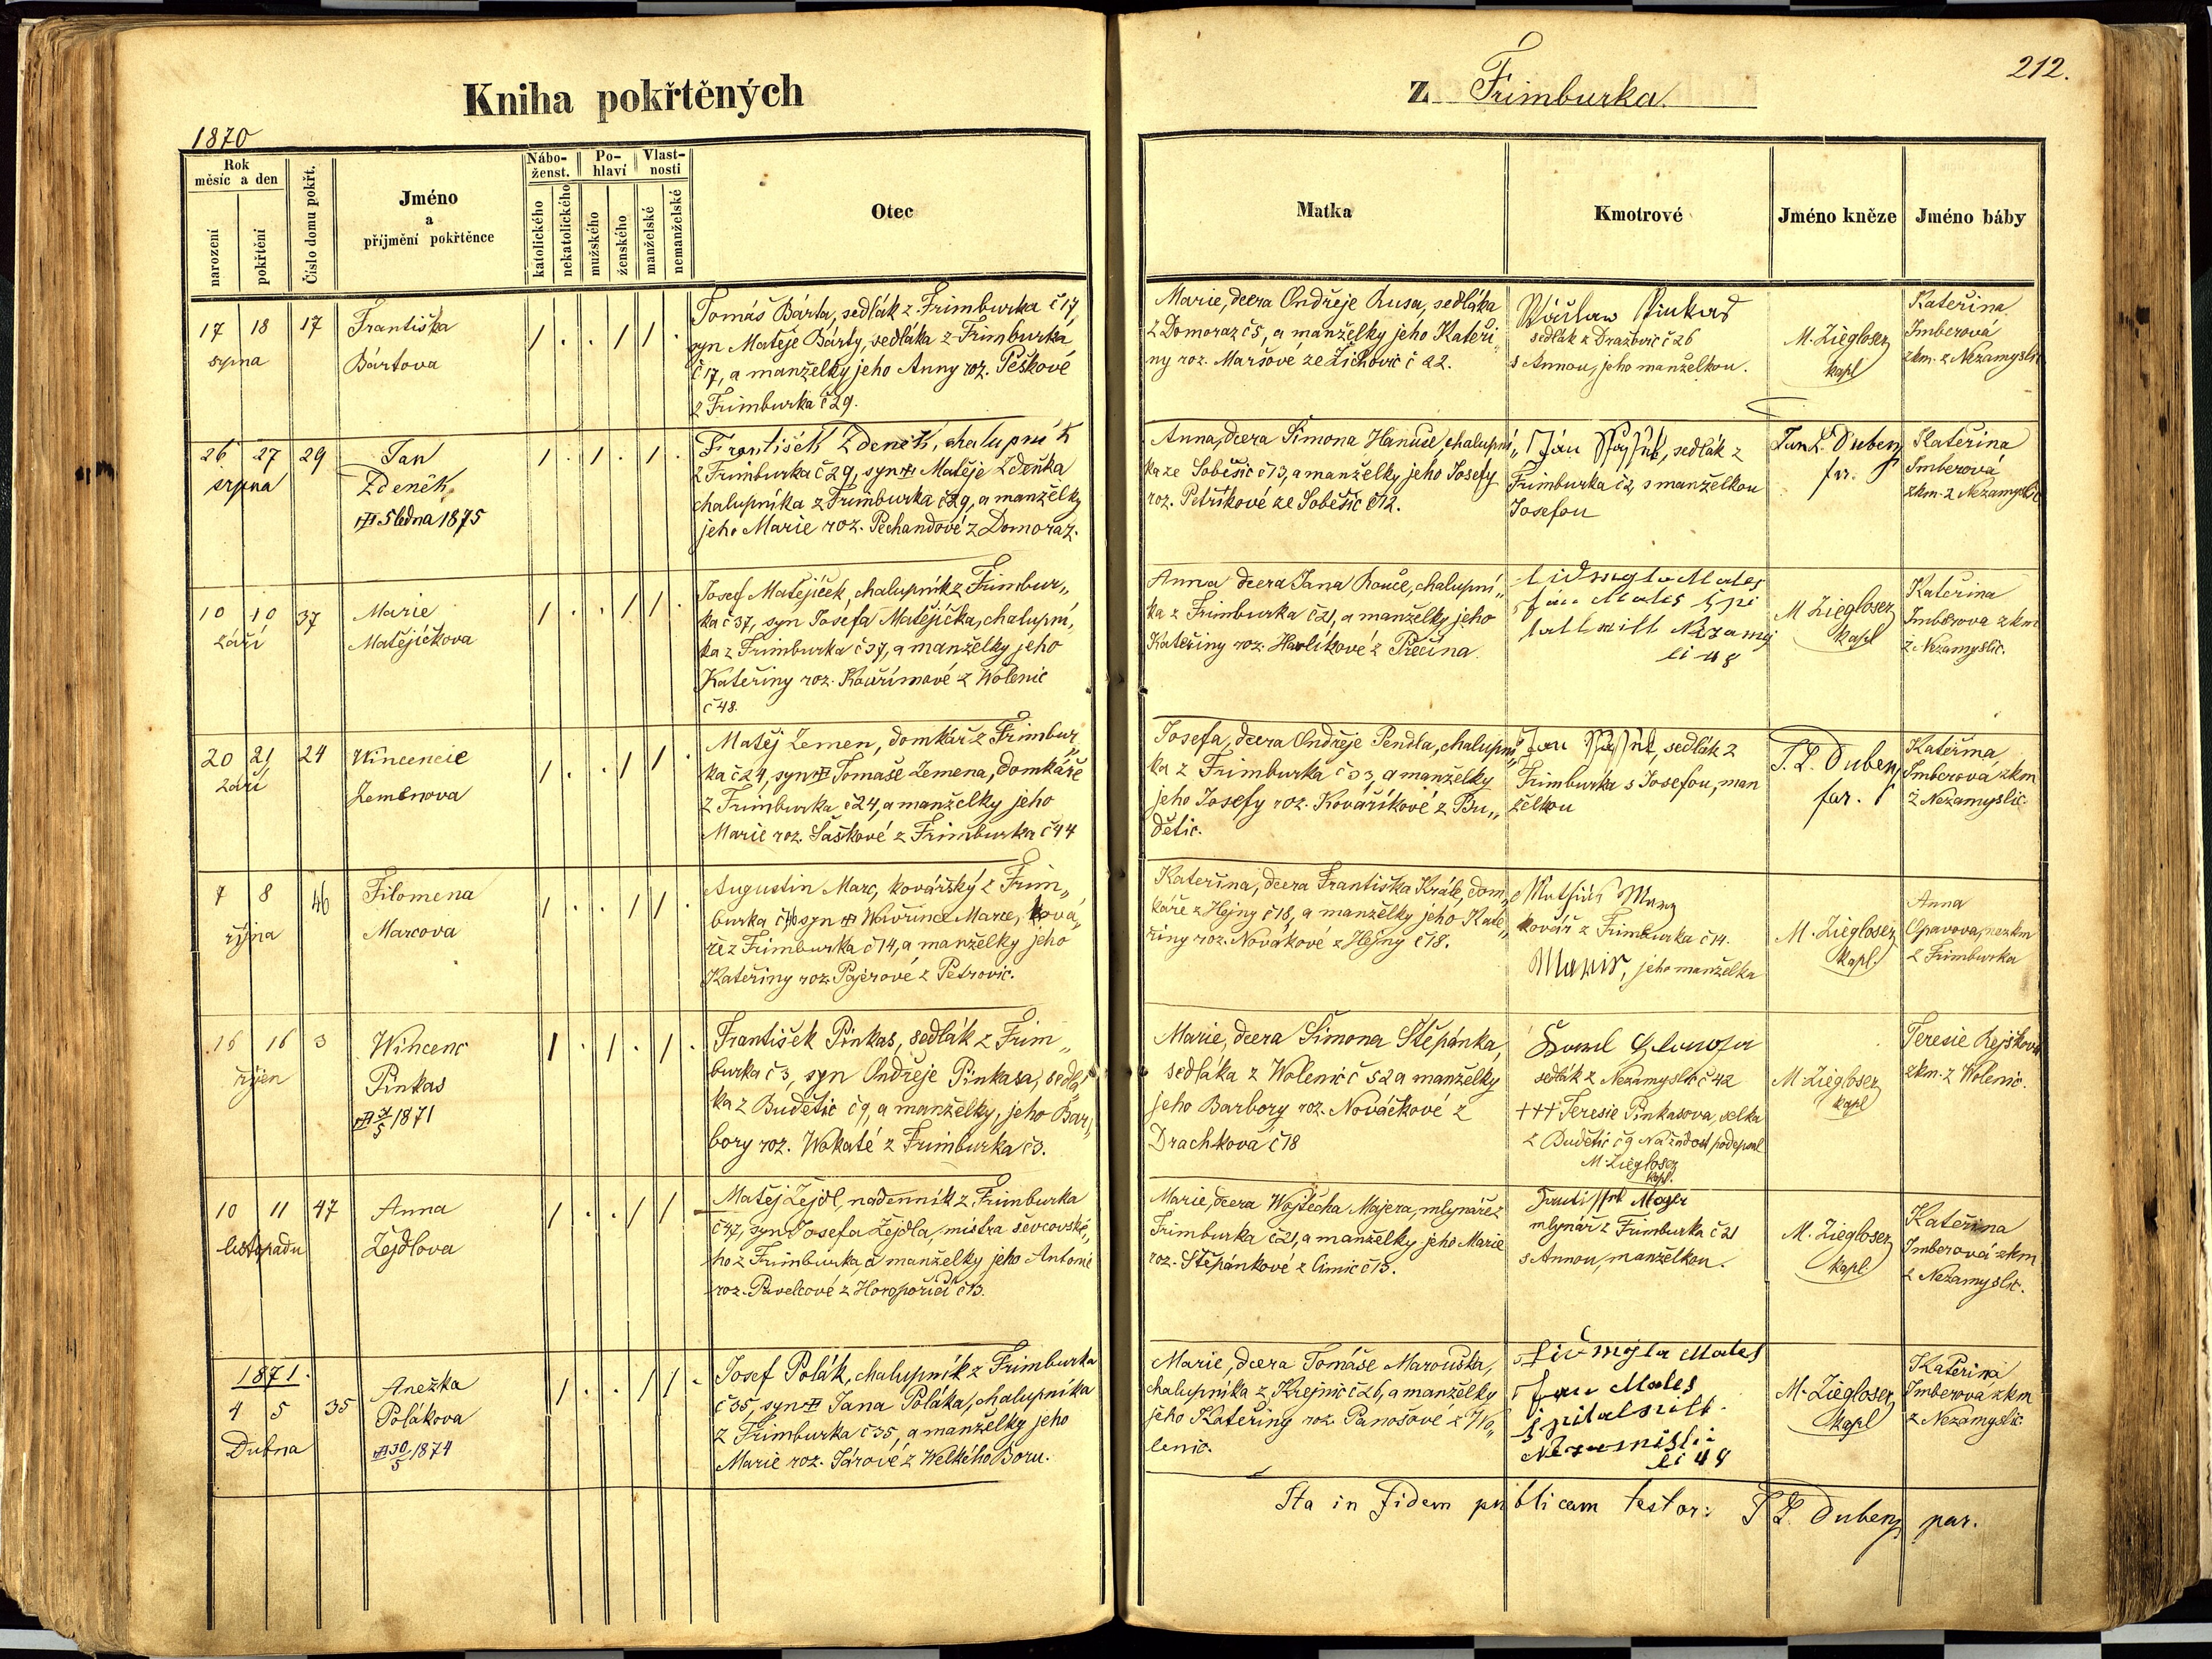 Kniha pokřtěných
z Frimburka
212.
1870
Rok
měsíc a den
narození
pokřtění
Číslo domu pokřt.
Jméno
a
příjmění pokřtěnce
Nábo-
ženst.
katolického
nekatolického
Po-
hlaví
mužského
ženského
Vlast-
nosti
manželské
nemanželské
Otec
Matka
Kmotrové
Jméno kněze
Jméno báby
17 18 17
srpna
Františka
Bártova
1 . . 1 1 .
Tomáš Bárta, sedlák z Frimburka č 17,
syn Matěje Bárty, sedláka z Frimburka
č 17, a manželky jeho Anny roz. Peškové
z Frimburka č 29.
Marie, dcera Ondřeje Rusa, sedláka
z Domoraz č 5, a manželky jeho Kateři„
ny roz. Maršové ze Žichovic č 22.
Václav Pinkas
sedlák z Dražovic č 26
s Annou, jeho manželkou.
M. Ziegloser
kapl
Kateřina
Imberová
zkm. z Nezamyslic
26 27 29
srpna
Jan
Zdeněk
5 ledna 1875
1 . 1 . 1 .
František Zdeněk, chalupník
z Frimburka č 29, syn Matěje Zdeňka
chalupníka z Frimburka č 29, a manželky
jeho Marie roz. Pechandové z Domoraz.
Anna, dcera Šimona Hanuše, chalupní„
ka ze Soběšic č 13, a manželky jeho Josefy
roz. Petříkové ze Soběšic č 12.
Jan, sedlák z
Frimburka č 2, s manželkou
Josefou
Jan L. Dubenz
far.
Kateřina
Imberová
zkm. z Nezamyslic
10 10 37
září
Marie
Matějíčkova
1 . . 1 1 .
Josef Matějíček, chalupník z Frimbur„
ka č 37, syn Josefa Matějíčka, chalupní„
ka z Frimburka č 37, a manželky jeho
Kateřiny roz. Kouřimové z Wolenic
č 48.
Anna dcera Jana Rouče, chalupní„
ka z Frimburka č 21, a manželky jeho
Kateřiny roz. Havlíkové z Přečína.
Lidmyla Males
Jan Males špi
talskitt Nezamy
li 48
M Ziegloser
kapl
Kateřina
Imberova zkm
z Nezamyslic.
20 21 24
září
Wincencie
Zemenova
1 . . 1 1 .
Matěj Zemen, domkář z Frimbur„
ka č 24, syn Tomaše Zemena, domkáře
z Frimburka č 24, a manželky jeho
Marie roz. Šaškové z Frimburka č 44
Josefa, dcera Ondřeje Pendla, chalupní„
ka z Frimburka č 33, a manželky
jeho Josefy roz. Kováříkové z Bu„
dětic.
Jan, sedlák z
Frimburka s Josefou, man
želkou
J. L. Dubenz
far.
Kateřina
Imberová zkm
z Nezamyslic.
7 8 46
října
Filomena
Marcova
1 . . 1 1 .
Augustin Marc, kovářský z Frim„
burka č 46 syn Wavřince Marce, ková„
ře z Frimburka č 14, a manželky jeho
Kateřiny roz. Pajerové z Petrovic.
Kateřina, dcera Františka Krále, dom„
káře z Hejny č 18, a manželky jeho Kate„
řiny roz. Novákové z Hejny č 18.
Mathias Marz
kovář z Frimburka č 14.
Marie, jeho manželka
M. Ziegloser
kapl.
Anna
Opavova, nezkm
z Frimburka
15 16 3
říjen
Wincenc
Pinkas
1871
1 . 1 . 1 .
František Pinkas, sedlák z Frim„
burka č 3, syn Ondřeje Pinkasa, sedlá„
ka z Budětic č 9, a manželky, jeho Bar„
bory roz. Wokaté z Frimburka č 3.
Marie, dcera Šimona Štěpánka,
sedláka z Wolenic č 52 a manželky
jeho Barbory roz. Nováčkové z
Drachkova č 18
sedlák z Nezamyslic č 42
+++ Teresie Pinkasova, selka
z Budětic č 9 Na žádost podepsal
M. Ziegloser
kapl.
M. Ziegloser
kapl
Teresie Rejškova
zkm. z Wolenic.
10 11 47
listopadu
Anna
Žejdlova
1 . . 1 1
Matěj Žejdl, nádenník z Frimburka
č 47, syn Josefa Žejdla, mistra ševcovské„
ho z Frimburka, a manželky jeho Antonie
roz. Pavelcové z Horopořičí č 13.
Marie, dcera Wojtěcha Majera, mlynáře z
Frimburka č 21, a manželky jeho Marie
roz. Štěpánkové z Čimic č 15.
Frantisek Mayer
mlynář z Frimburka č 21
s Annou, manželkou.
M. Ziegloser
kapl
Kateřina
Imberová zkm
z Nezamyslic.
1871.
4 5 35
Dubna
Anežka
Polákova
30/5 1874
1 . . 1 1 .
Josef Polák, chalupník z Frimburka
č 35, syn Jana Poláka, chalupníka
z Frimburka č 35, a manželky jeho
Marie roz. Járové z Welkého Boru.
Marie, dcera Tomáše Marouška,
chalupníka z Krejnic č 26, a manželky
jeho Kateřiny roz. Panošové z Wo„
lenic.
Lidmyla Males
Jan Males
špitalskitt
Nezamisli
li 48
M. Ziegloser
kapl
Kateřina
Imberova zkm
z Nezamyslic
Ita in fidem publicam testor: J L. Dubenz par.